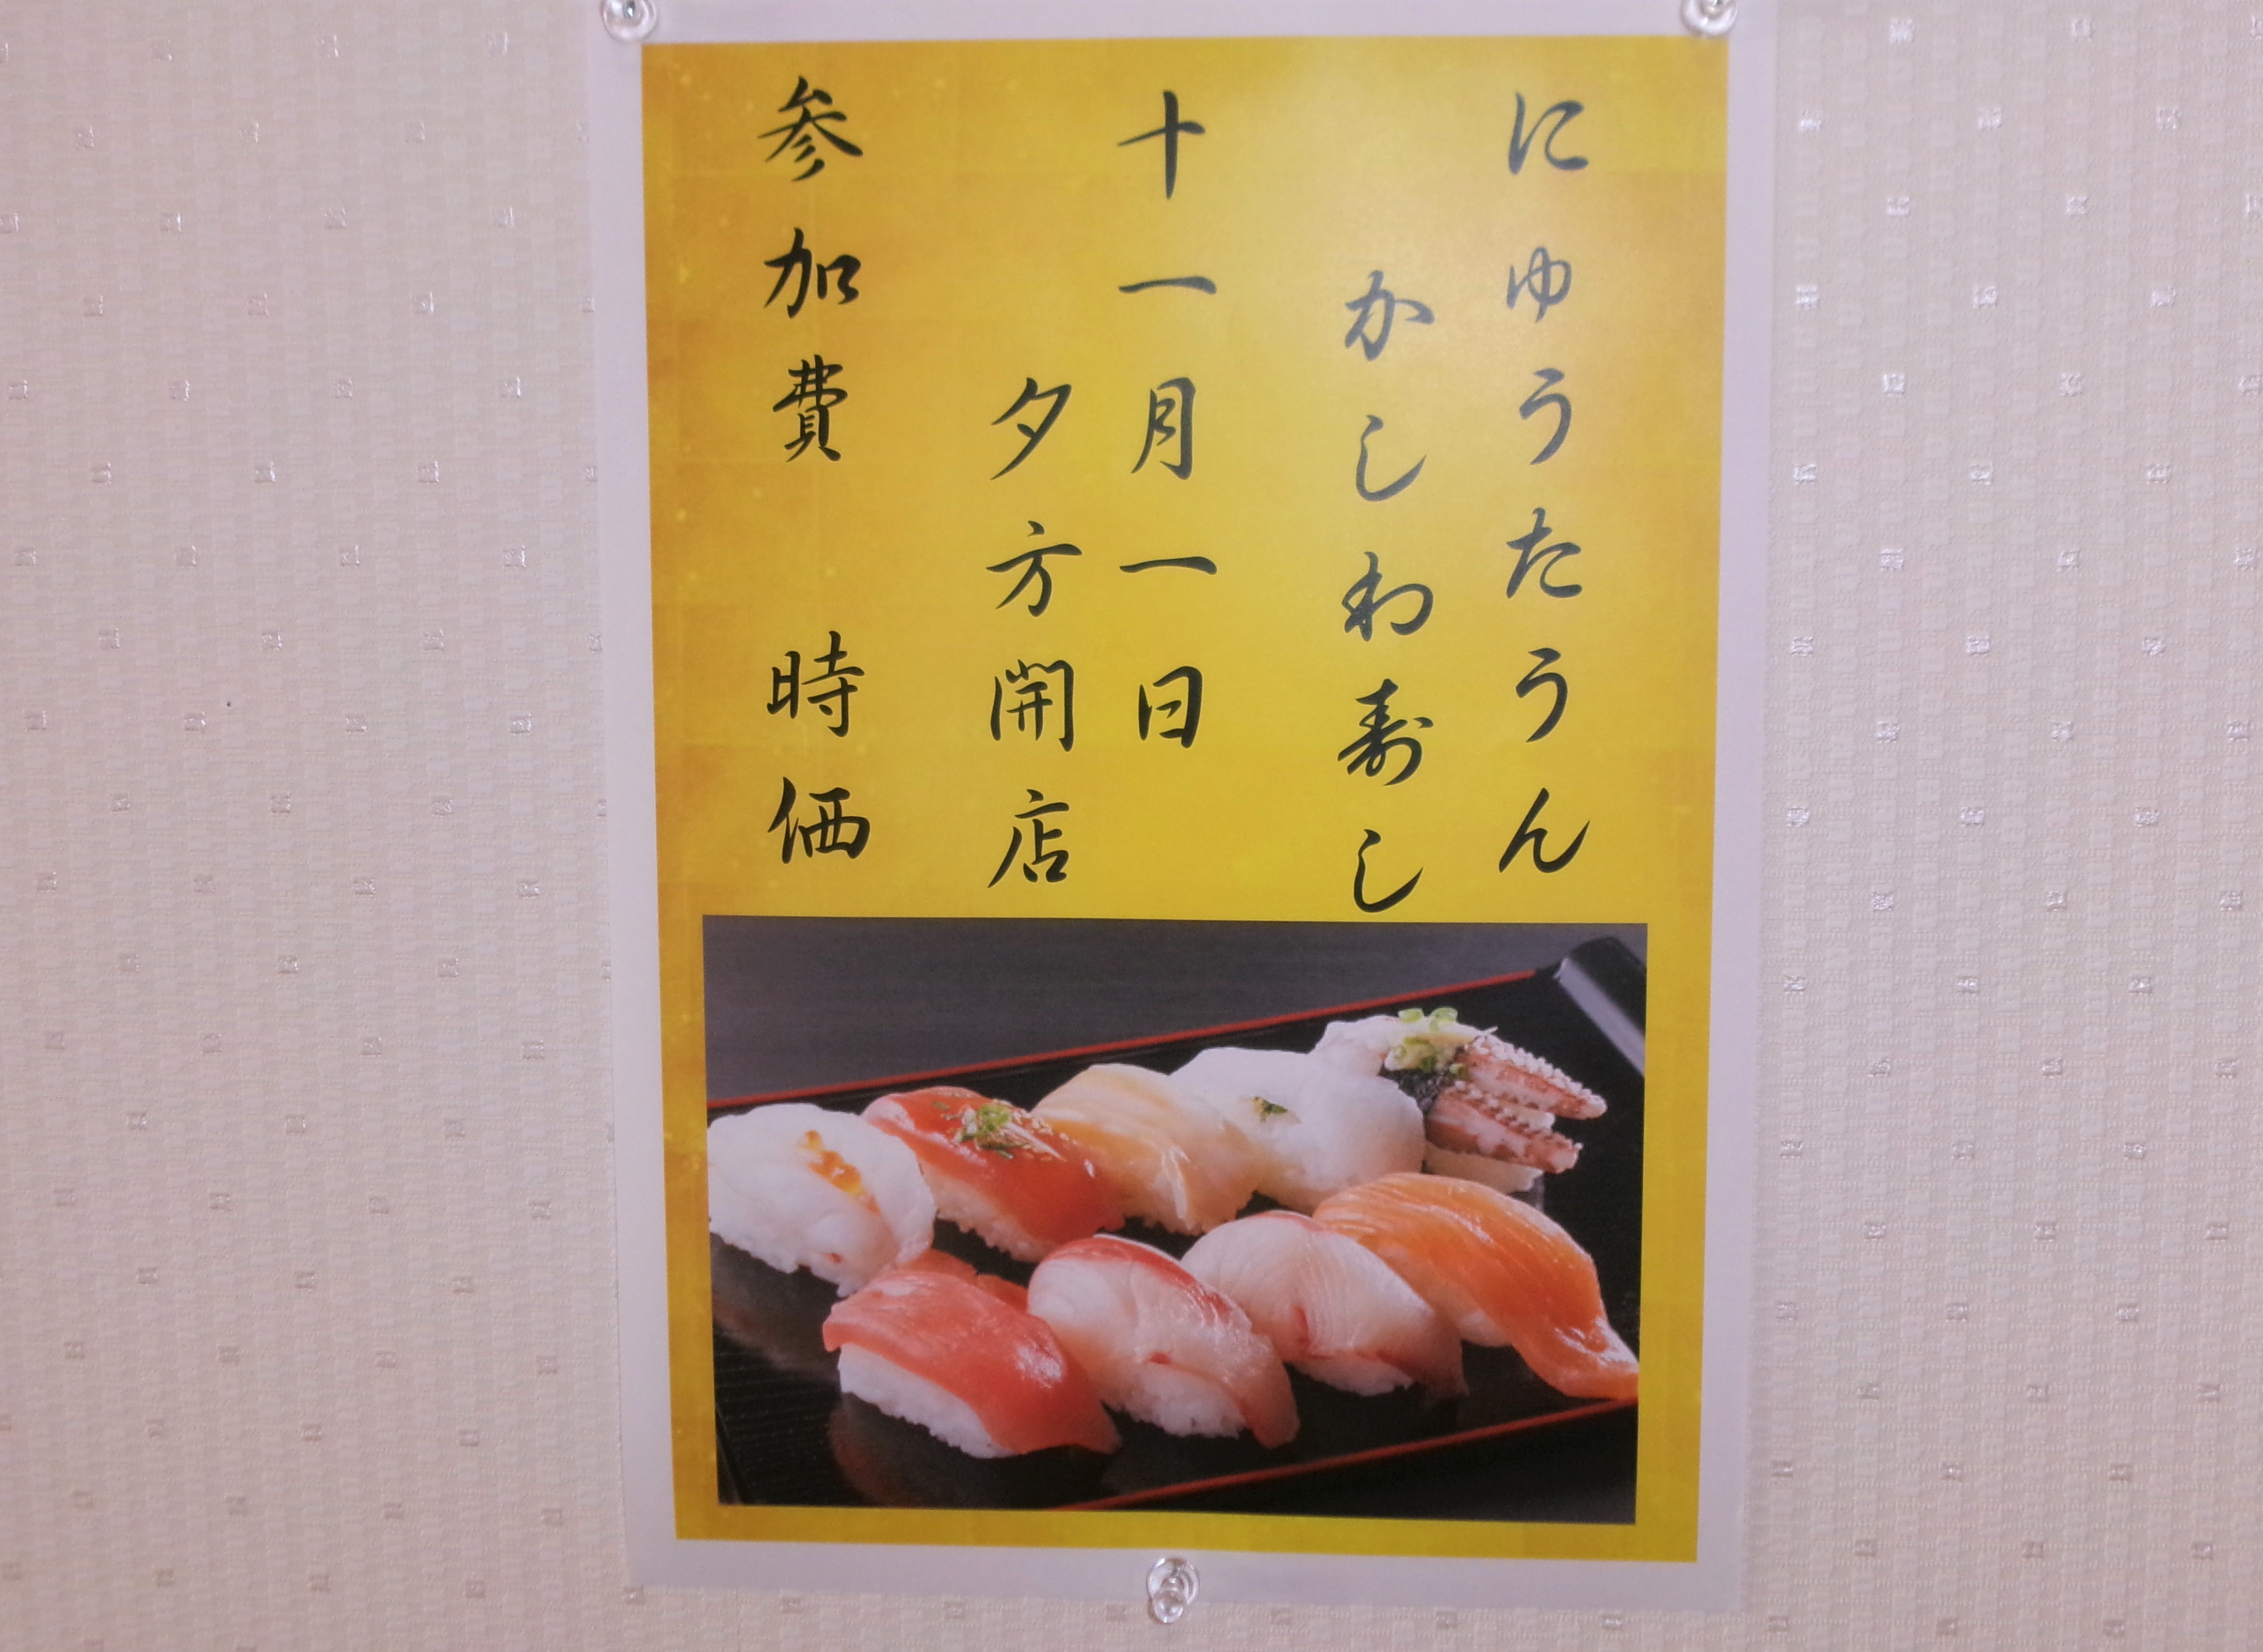 にゅうたうん
かしわ寿し
十一月一日
夕方開店
参加費　時価